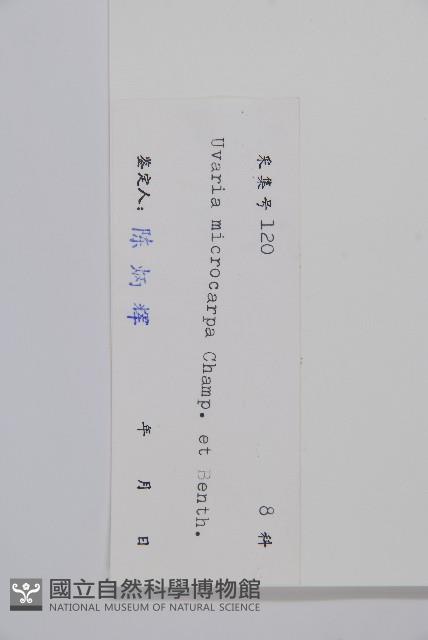 采集号 120 8 科
Uvaria microcarpa Champ. et Benth.
鉴定人: 陈炳辉 年 月 日
國立自然科學博物館
NATIONAL MUSEUM OF NATURAL SCIENCE